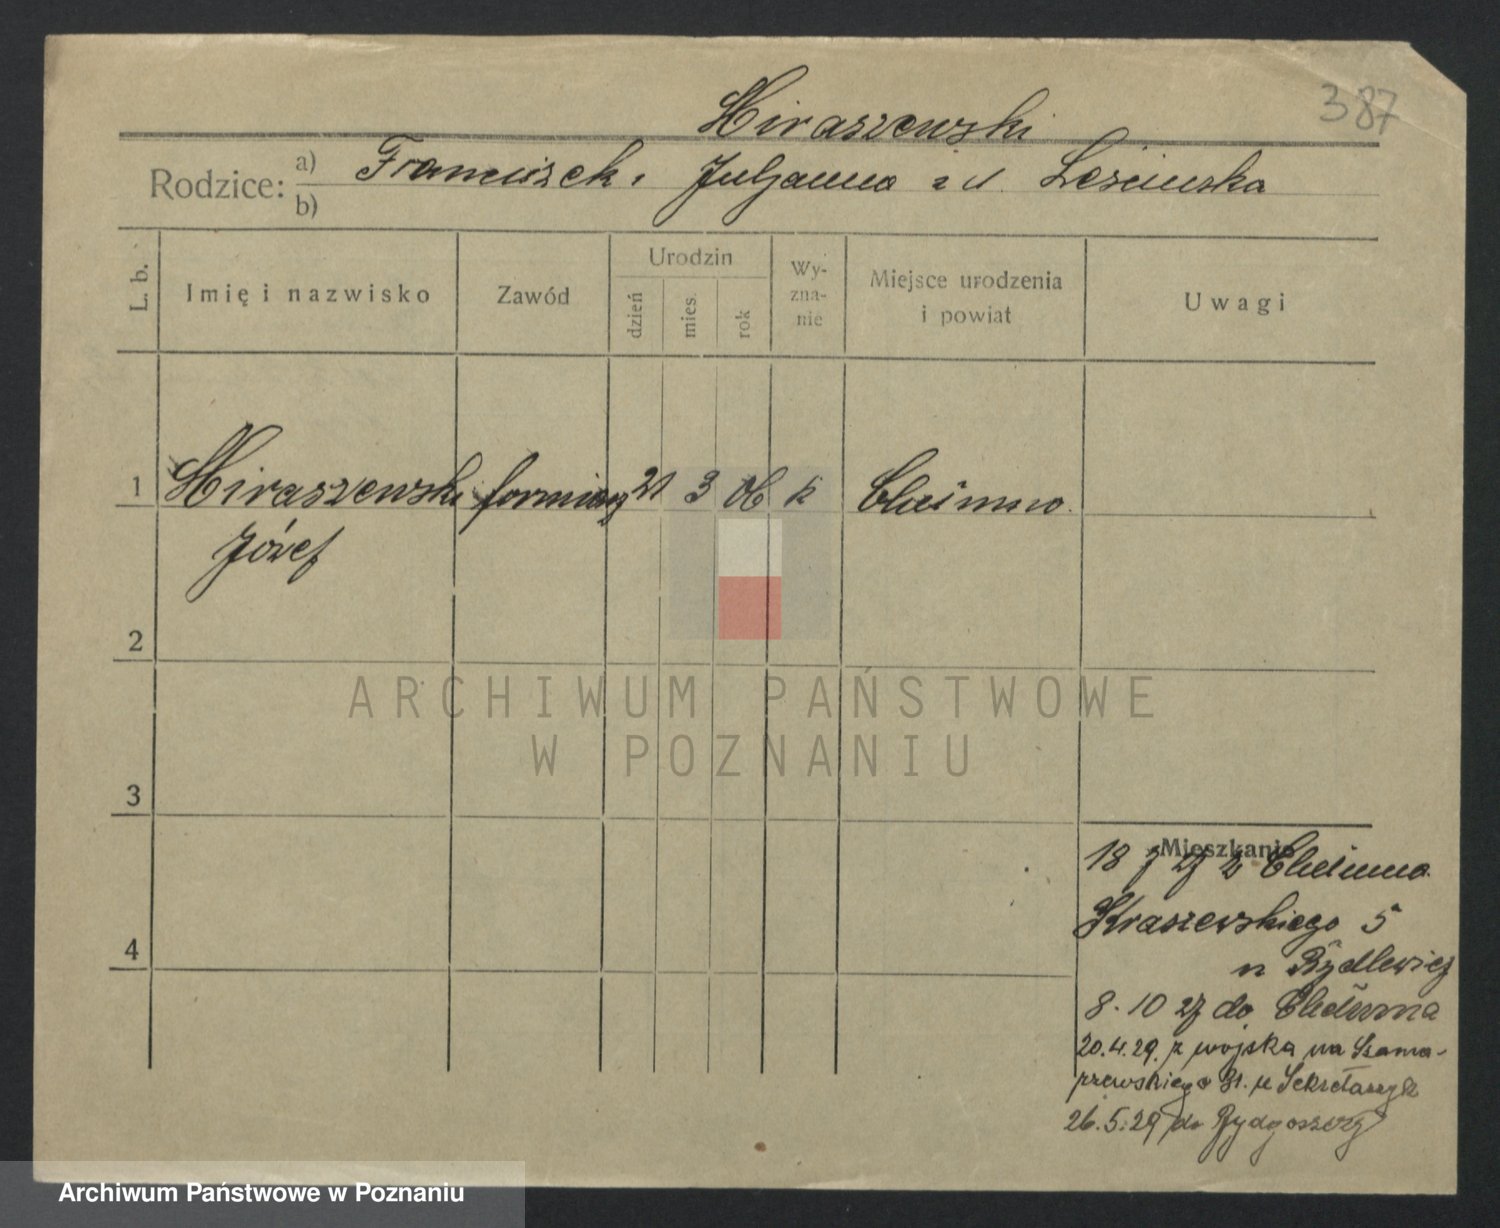 387
Miraszewski
Rodzice: a) Franciszek i Juljanna z d. Lesińska
b)
L. b. Imię i nazwisko Zawód Urodzin dzień mies. rok Wyznanie Miejsce urodzenia i powiat Uwagi
1 Miraszewski formierz 21 3 06 k Chełmno
Józef
2
ARCHIWUM PAŃSTWOWE
W POZNANIU
3
Mieszkanie
18 7 27 z Chełmna
Kraszewskiego 5
4
u Rydlewicz
8.10 27 do Chełmna
20.4.29. z wojska na Szama-
rzewskiego 31. u
26.5.29 do Bydgoszczy
Archiwum Państwowe w Poznaniu